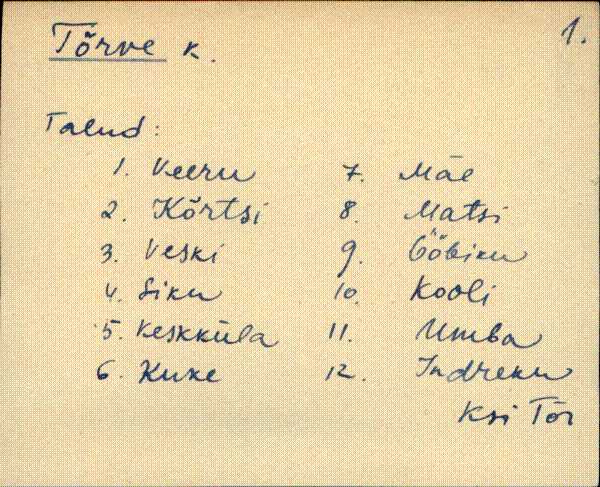 Tõrve k.
1.
Talud:
1. Veeru
2. Kõrtsi
3. Veski
4. Siku
5. Keskküla
6. Kuke
7. Mäe
8. Matsi
9. Ööbiku
10. Kooli
11. Umba
12. Indreku
Ksi Tõr